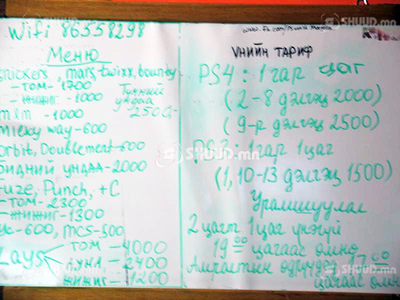 Wifi 86558298
Меню
snickers, mars, twixx, bounty
- том - 1700
- жижиг - 1000
m&m - 1000
Milky way - 600
Orbit, Doublement - 600
ундаа - 2000
Fuze, Punch, +C
- том - 2300
- жижиг - 1300
- 600, mcs - 500
Lays
том - 4000
дунд - 2400
жижиг - 1200
ундаа
2500
ҮНИЙН ТАРИФ
PS4 : 1 гар цаг
(2-8 дэлгэц 2000)
(9-р дэлгэц 2500)
1 гар 1 цаг
(1, 10-13 дэлгэц 1500)
Урамшуулал
2 цагт 1 цаг үнэгүй
19 00 цагаас өмнө
Амралтын өдрүүдэд 17 00
цагаас өмнө
SHUUD.mn
SHUUD.mn
SHUUD.mn